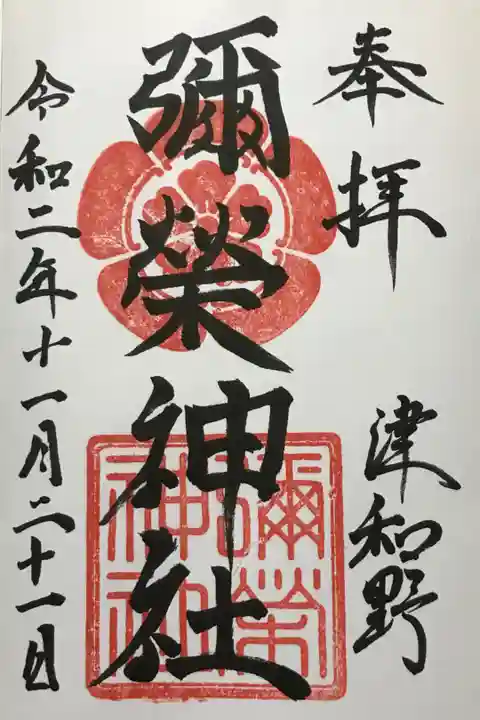 奉拝
津和野
彌榮神社
彌榮神社
令和二年十一月二十一日